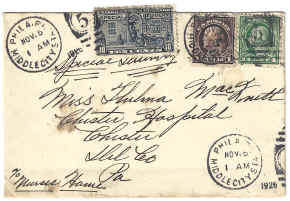 PHILA. P
NOV. 6
1 AM
MIDDLECITY. STA
Special Delivery
Miss Thelma
Chester Hospital
Chester
Del Co
Pa
Nurses Home
PHILA. P
NOV. 6
1 AM
MIDDLECITY. STA
1926